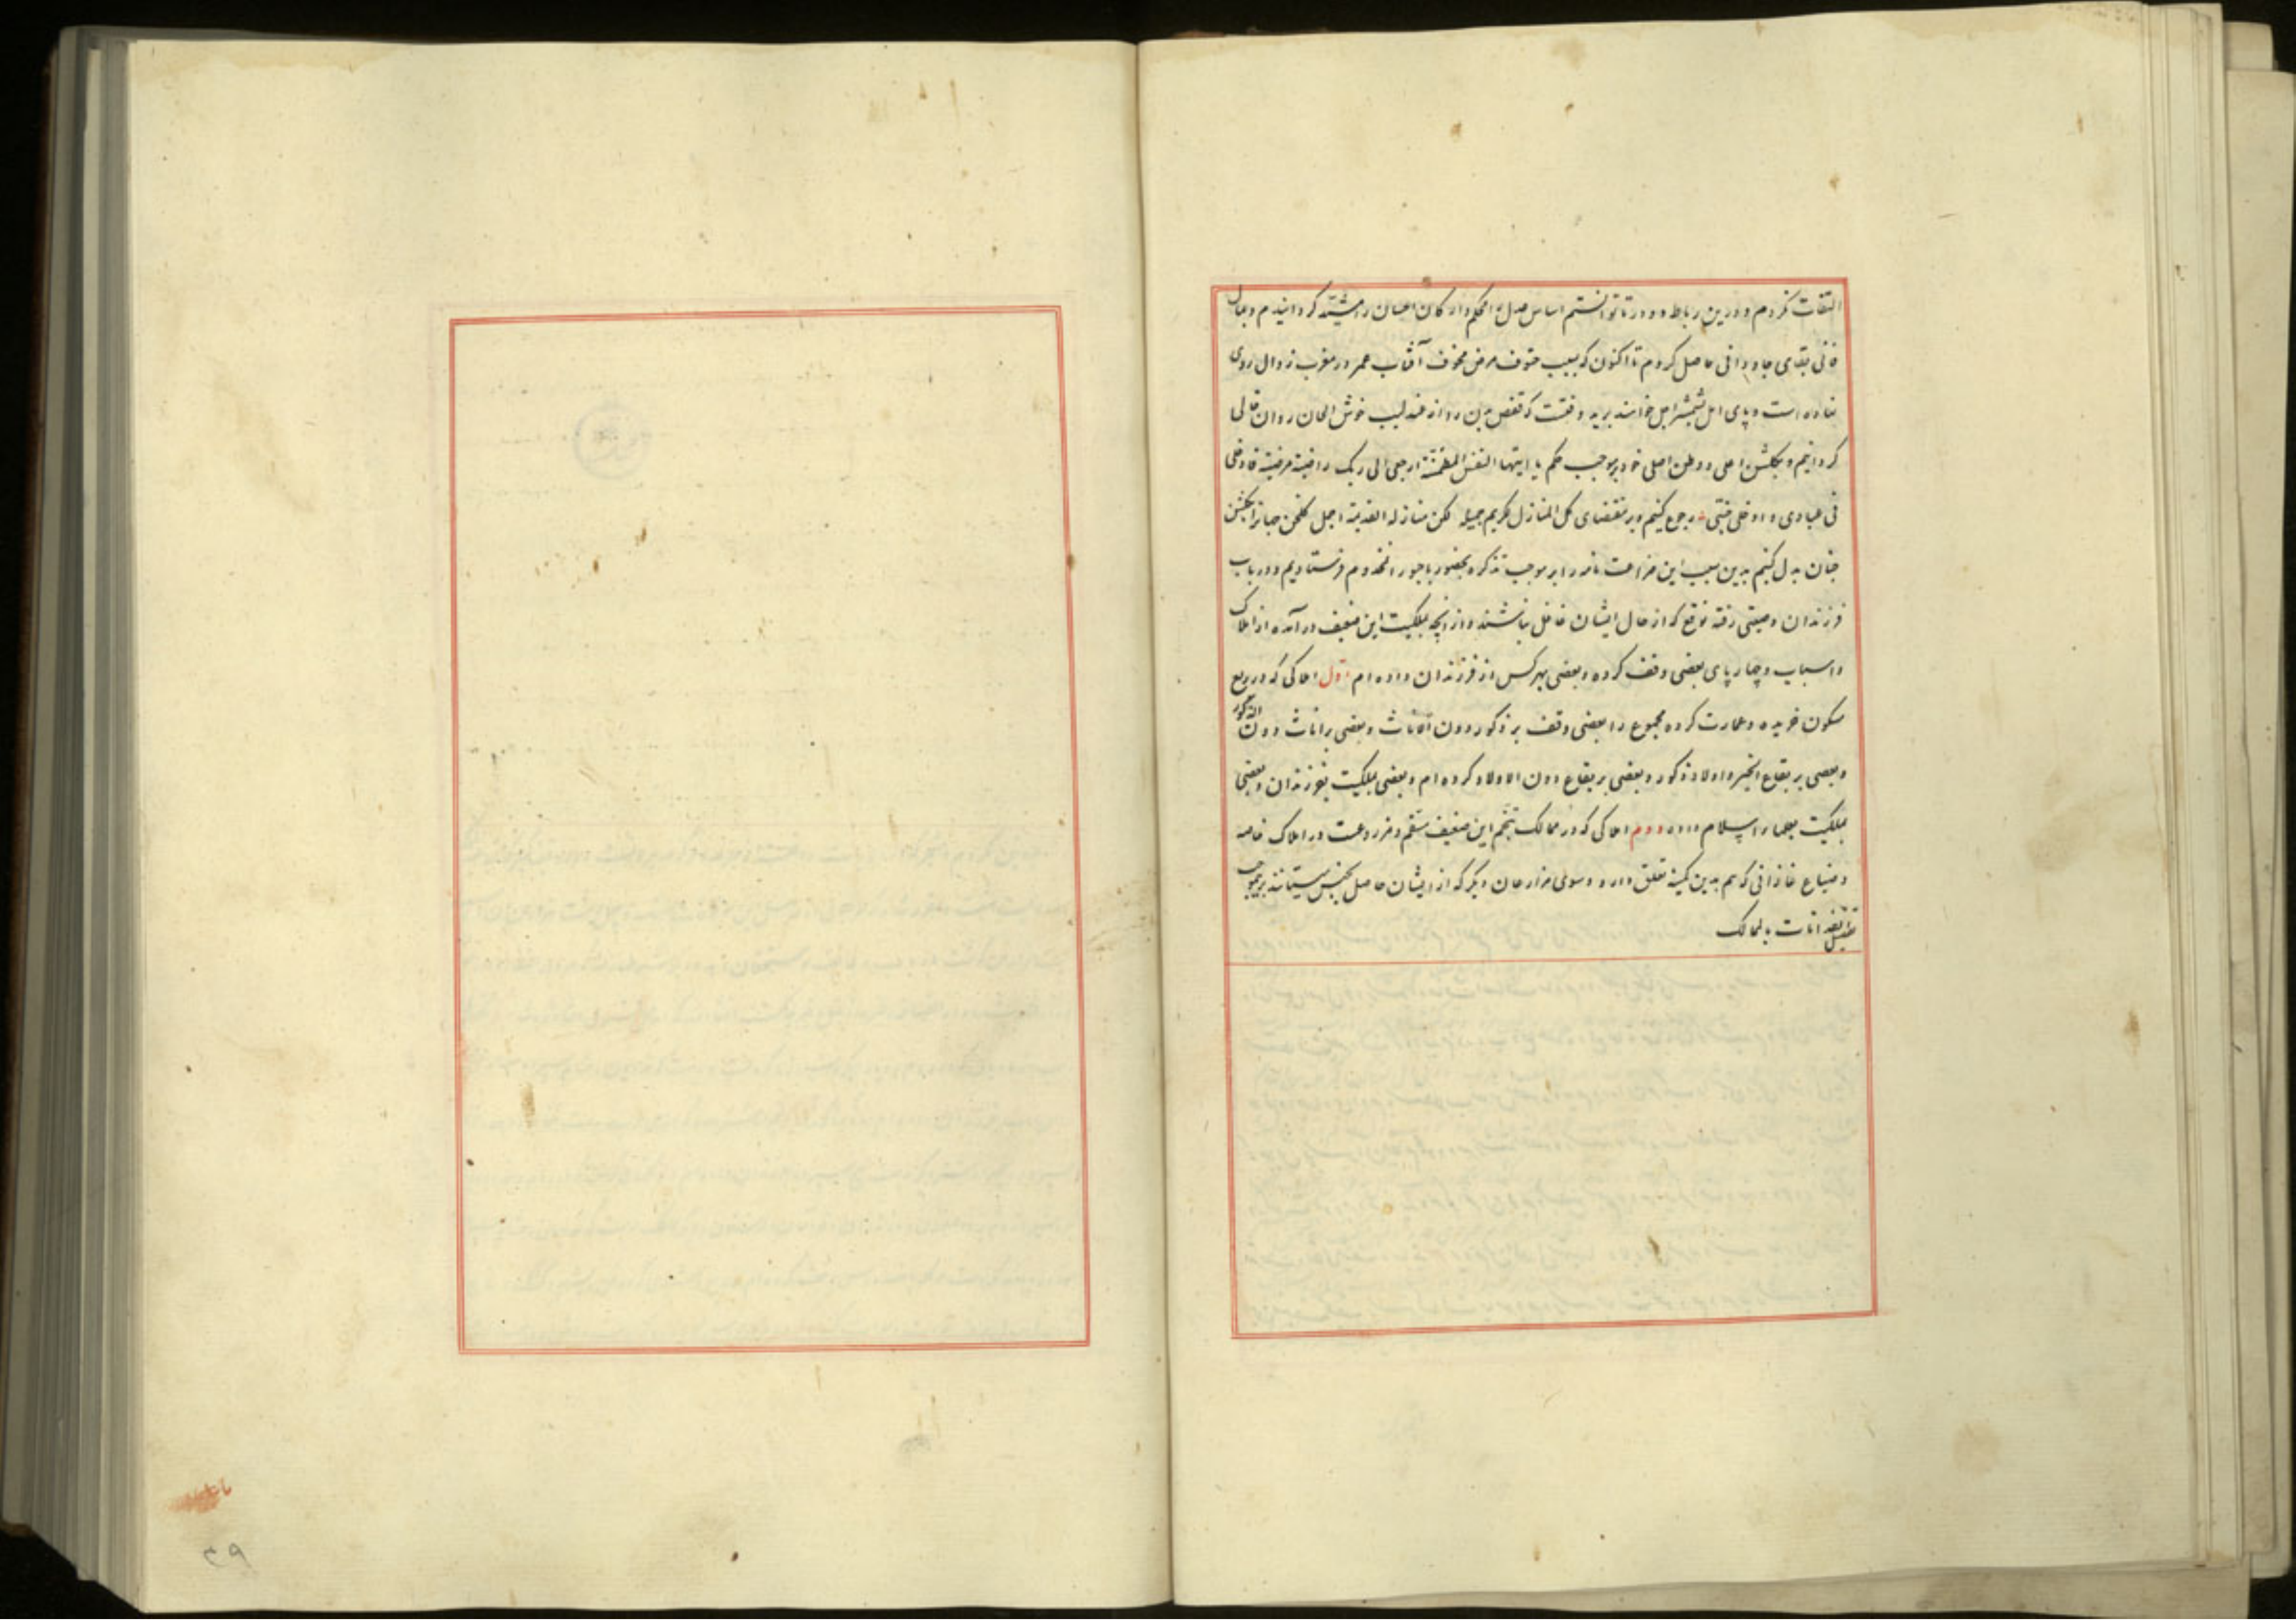 التفات نکردم و درین رباط دو در تا توانستم اساس عدل را محکم و ارکان احسان را مشیّد کردانیدم و بمال
فانی بقای جاودانی حاصل کردم تا اکنون که بسبب حتوف مرض مخوف آفتاب عمر در مغرب زوال روی
نهاده است و پای امل بشمشیر اجل خواهند برید وقتست که قفص بدن را از عندلیب خوش الحان روان خالی
کردانیم و بکلشن اصلی و وطن اصلی خود بر موجب حکم یا ایتها النفس المطمئنة ارجعی الی ربک راضیة مرضیة فادخلی
فی عبادی و ادخلی جنتی رجوع کنیم و بر مقتضای کل المنازل للکریم جمیلة لکن منازله القدیمة اجمل کلخن جهانرا بکلشن
جنان بدل کنیم بدین سبب این ضراعت نامه را بر موجب تذکره بحضور باحبور آن مخدوم فرستادیم و در باب
فرزندان وصیتی رفته توقع که از حال ایشان غافل نباشند و از آنچه بملکیت این ضعیف درآمده از املاک
و اسباب و چهارپای بعضی وقف کرده و بعضی بهر کس از فرزندان داده ام اول املاکی که در ربع
مسکون خریده و عمارت کرده مجموع را بعضی وقف بر ذکور دون اناث و بعضی بر اناث دون الذکور
و بعضی بر بقاع الخیر و اولاد ذکور و بعضی بر بقاع دون الاولاد کرده ام و بعضی بملکیت بفرزندان و بعضی
بملکیت بعلماء اسلام داده دوم املاکی که در ممالک بتخم این ضعیف مزروعست در املاک خاصه
و ضیاع غازانی که هم بدین کمینه تعلق دارد و سوی مزارعان دیکر که از ایشان حاصل بجنس میستانند بر موجب
بالممالک
۳۹